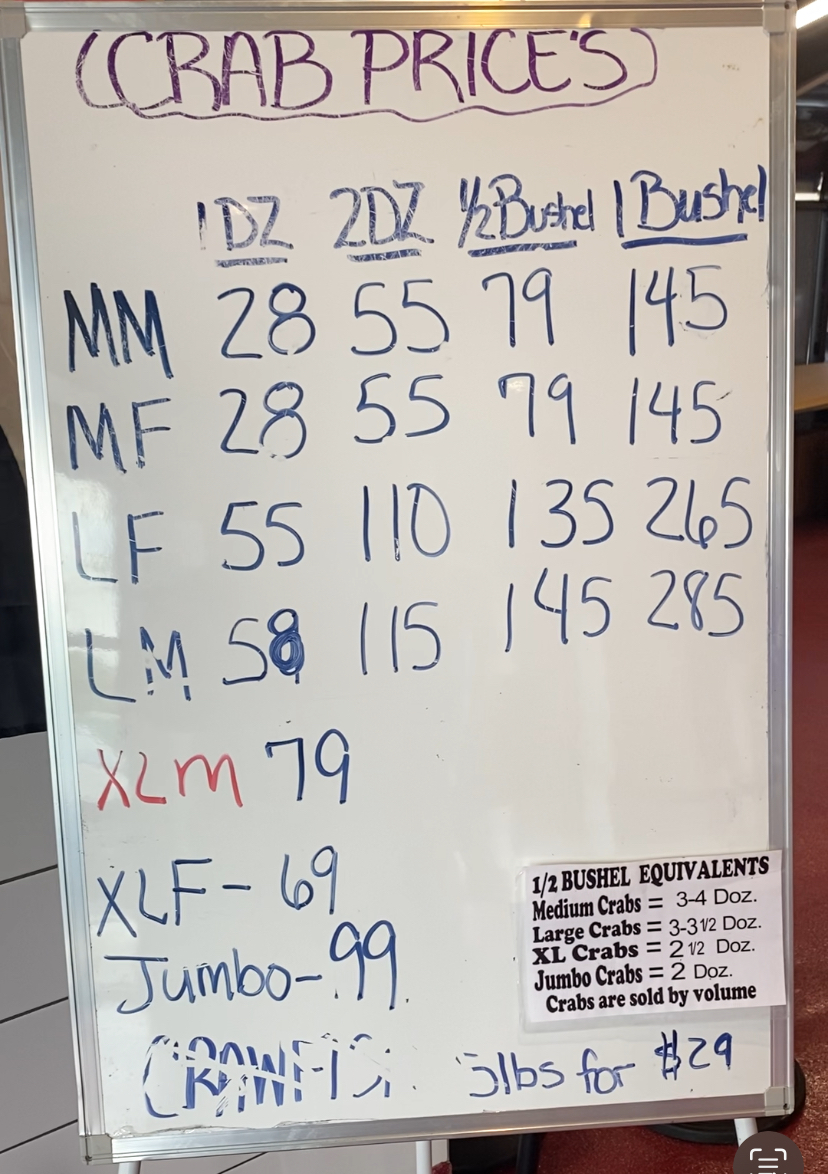 (CRAB PRICE'S)
1DZ 2DZ 1/2 Bushel 1 Bushel
MM 28 55 79 145
MF 28 55 79 145
LF 55 110 135 265
LM 58 115 145 285
XLM 79
XLF - 69
Jumbo - 99
1/2 BUSHEL EQUIVALENTS
Medium Crabs = 3-4 Doz.
Large Crabs = 3-3 1/2 Doz.
XL Crabs = 2 1/2 Doz.
Jumbo Crabs = 2 Doz.
Crabs are sold by volume
5lbs for $29